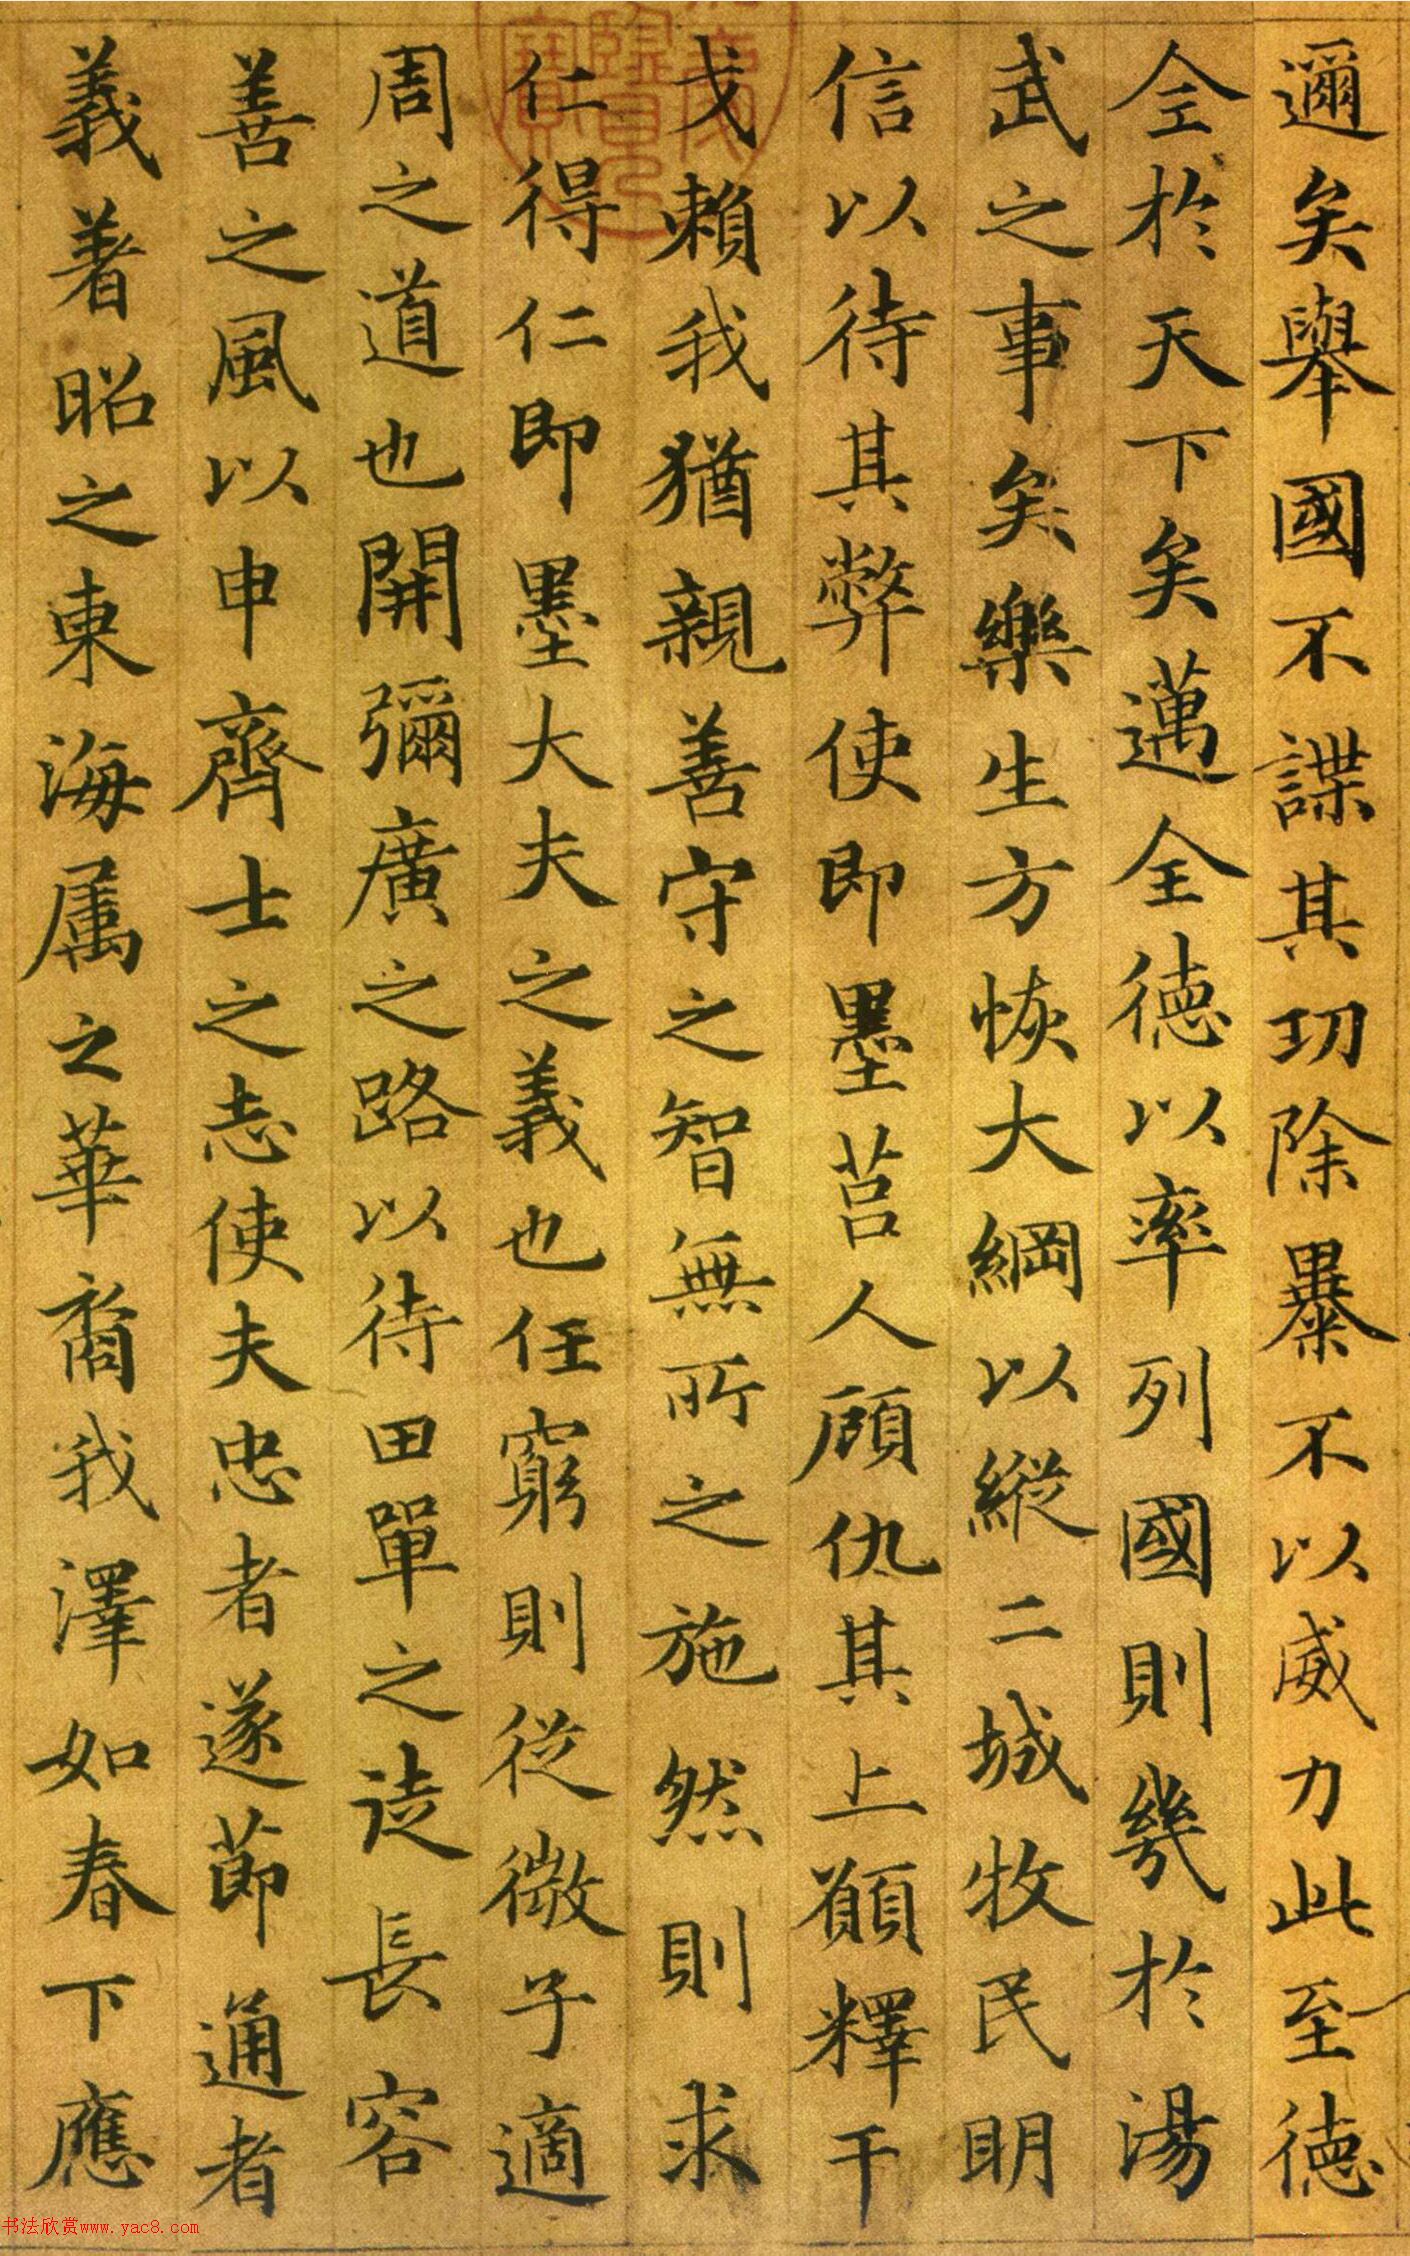 邇矣舉國不謀其功除暴不以威力此至德
全於天下矣邁全德以率列國則幾於湯
武之事矣樂生方恢大綱以縱二城牧民明
信以待其弊使即墨莒人顧仇其上願釋干
戈賴我猶親善守之智無所之施然則求
仁得仁即墨大夫之義也任窮則從微子適
周之道也開彌廣之路以待田單之徒長容
善之風以申齊士之志使夫忠者遂節通者
義著昭之東海属之華裔我澤如春下應
书法欣赏www.yac8.com